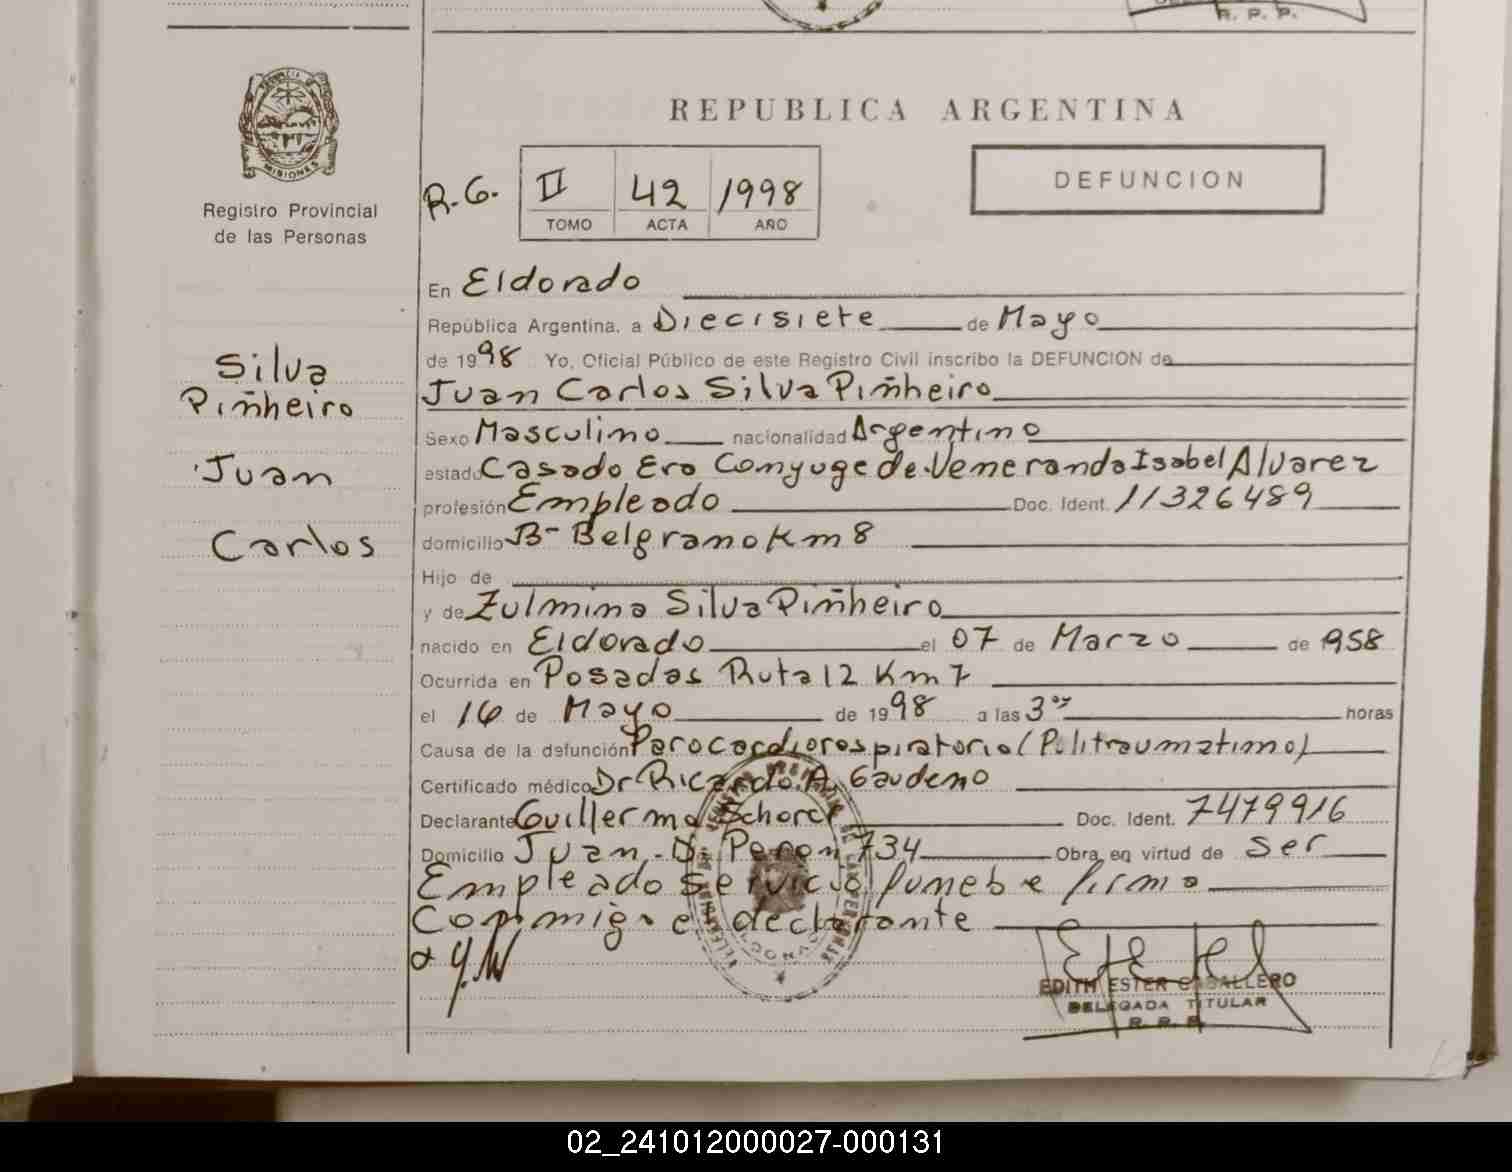 R. P. P.
PROVINCIA DE
MISIONES
Registro Provincial
de las Personas
REPUBLICA ARGENTINA
DEFUNCION
R.G. II 42 1998
TOMO ACTA AÑO
Silva
Piñheiro
Juan
Carlos
En Eldorado
República Argentina, a Diecisiete de Mayo
de 1998 Yo, Oficial Público de este Registro Civil inscribo la DEFUNCION de
Juan Carlos Silva Piñheiro
Sexo Masculino nacionalidad Argentino
estado Casado Era Conyuge de Veneranda Isabel Alvarez
profesión Empleado Doc. Ident. 11326489
domicilio B- Belgrano Km 8
Hijo de
y de Zulmina Silva Piñheiro
nacido en Eldorado el 07 de Marzo de 1958
Ocurrida en Posadas Ruta 12 Km 7
el 16 de Mayo de 1998 a las 3 horas
Causa de la defunción Parocardiorespiratorio (Politraumatimo)
Certificado médico Dr Ricardo. A. Gaudeno
Declarante Guillermo Doc. Ident. 7479916
Domicilio Juan. D. Peron 734 Obra en virtud de ser
Empleado servicio funebre firma
Conmigo el declarante
EDITH ESTER CABALLERO
DELEGADA TITULAR
R. P. P.
02_241012000027-000131